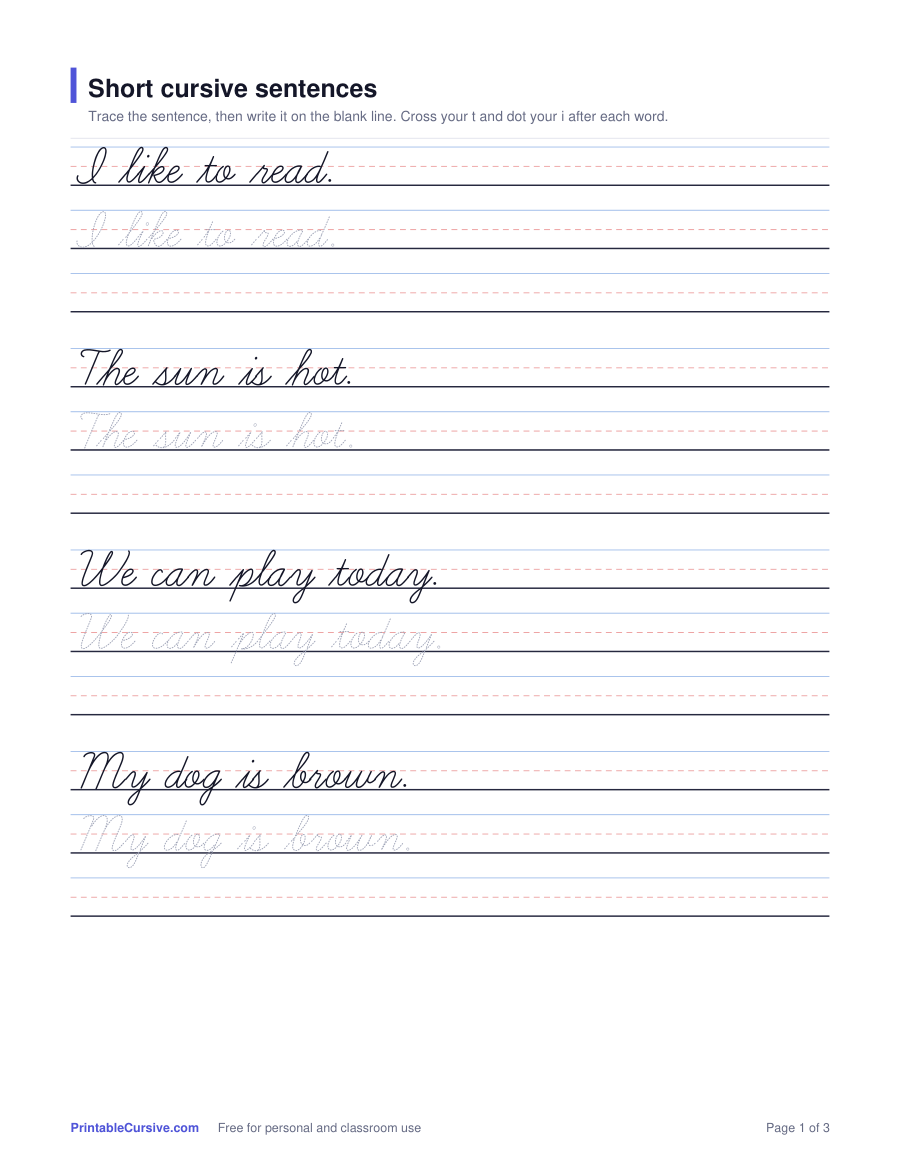 Short cursive sentences
Trace the sentence, then write it on the blank line. Cross your t and dot your i after each word.
I like to read.
I like to read.
The sun is hot.
The sun is hot.
We can play today.
We can play today.
My dog is brown.
My dog is brown.
PrintableCursive.com Free for personal and classroom use Page 1 of 3